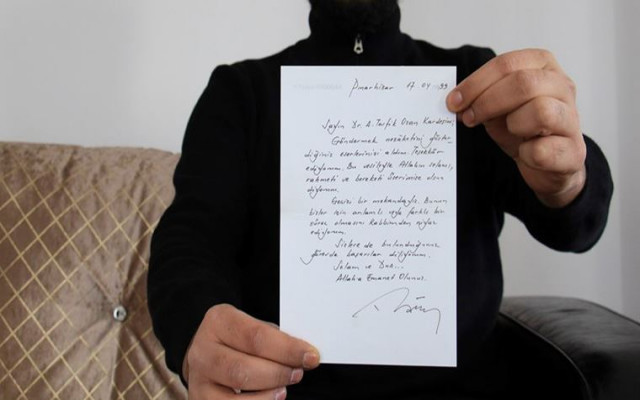 Pınarhisar 17.04.99
Sayın Dr. A. Tevfik Ozan Kardeşim,
Göndermek nezaketini göster-
diğiniz eserlerinizi aldım. Teşekkür
ediyorum. Bu vesileyle Allahın selamı,
rahmeti ve bereketi üzerinize olsun
diyorum.
Geçici bir mekandayız. Bunun
bizler için anlamlı veya farklı bir
süreç olmasını Rabbimden niyaz
ediyorum.
Sizlere de bulunduğunuz
yerde başarılar diliyorum.
Selam ve Dua...
Allaha Emanet Olunuz.